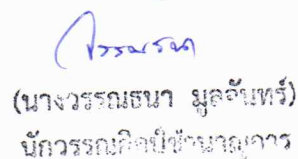 วรรณธนา
(นางวรรณธนา มูลจันทร์)
นักวรรณศิลป์ชำนาญการ